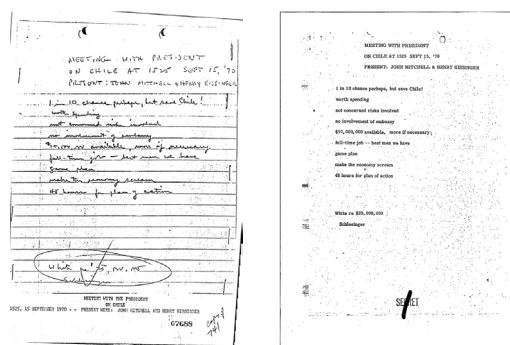 MEETING WITH PRESIDENT
ON CHILE AT 1525 SEPT 15, '70
PRESENT: JOHN MITCHELL & HENRY KISSINGER
1 in 10 chance perhaps, but save Chile!
worth spending
not concerned risks involved
no involvement of embassy
$10,000,000 available, more if necessary
full-time job — best men we have
game plan
make the economy scream
48 hours for plan of action
MEETING WITH THE PRESIDENT
ON CHILE
1525, 15 SEPTEMBER 1970 -- PRESENT WERE: JOHN MITCHELL AND HENRY KISSINGER
07688
MEETING WITH PRESIDENT
ON CHILE AT 1525 SEPT 15, '70
PRESENT: JOHN MITCHELL & HENRY KISSINGER
1 in 10 chance perhaps, but save Chile!
worth spending
not concerned risks involved
no involvement of embassy
$10,000,000 available, more if necessary
full-time job -- best men we have
game plan
make the economy scream
48 hours for plan of action
White re $25,000,000
Schlesinger
SECRET